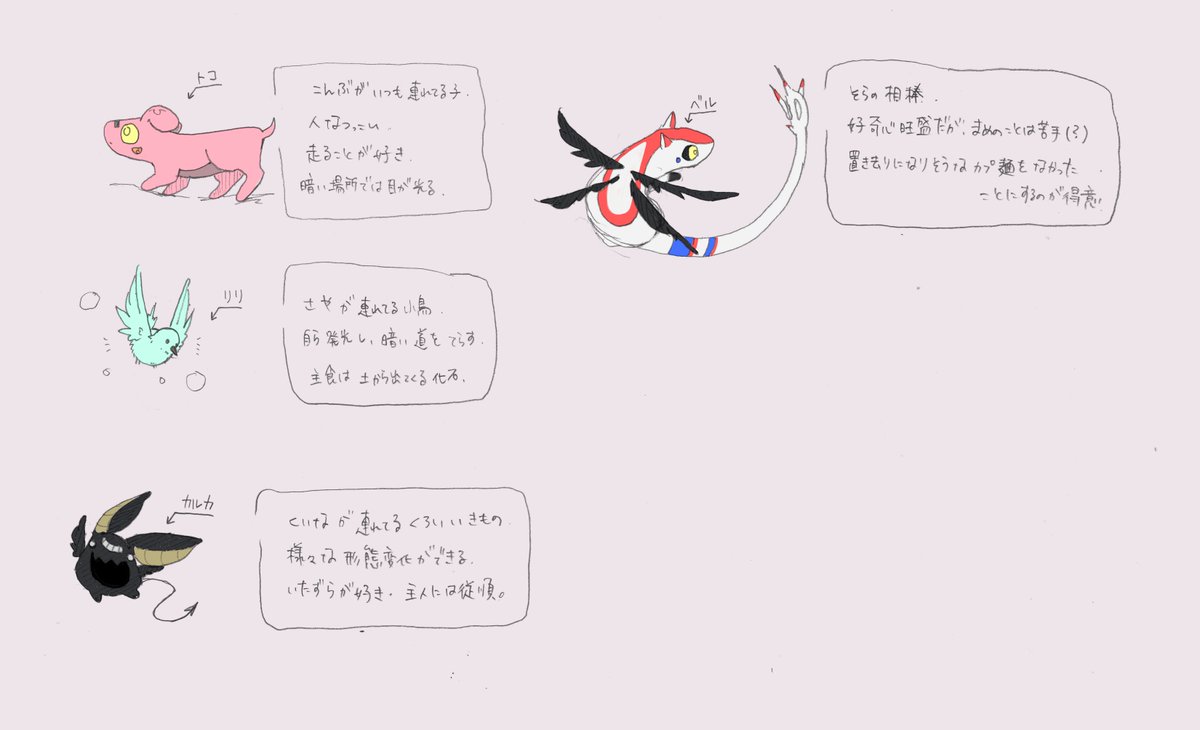 トコ
こんぶがいつも連れてる子.
人なつっこい.
走ることが好き.
暗い場所では目が光る.
ベル
そらの相棒.
好奇心旺盛だが、まめのことは苦手(?)
置き去りになりそうなカプ麺をなかった
ことにするのが得意.
リリ
さやが連れてる小鳥.
自ら発光し、暗い道をてらす.
主食は土から出てくる化石.
カルカ
くいなが連れてるくろいいきもの.
様々な形態変化ができる.
いたずらが好き.主人には従順。